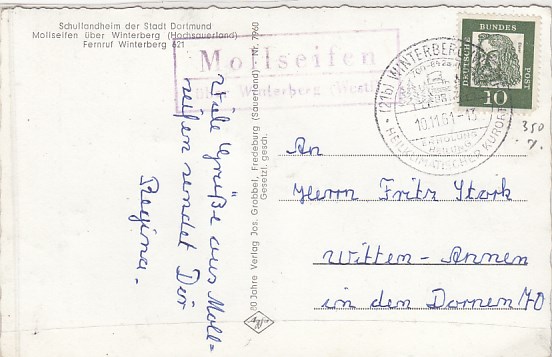 Schullandheim der Stadt Dortmund
Mollseifen über Winterberg (Hochsauerland)
Fernruf Winterberg 621
Mollseifen
über Winterberg (Westf)
(21b) WINTERBERG
10.11.61-12
ERHOLUNG
HEILKLIMATISCHER KURORT
DEUTSCHE BUNDESPOST
10
350
Viele Grüße aus Moll=
seifen sendet Dir
Regina.
60 Jahre Verlag Jos. Grobbel, Fredeburg (Sauerland) Nr. 7960
Gesetzl. gesch.
An
Herrn Fritz Stork
Witten-Annen
in den Dornen 70